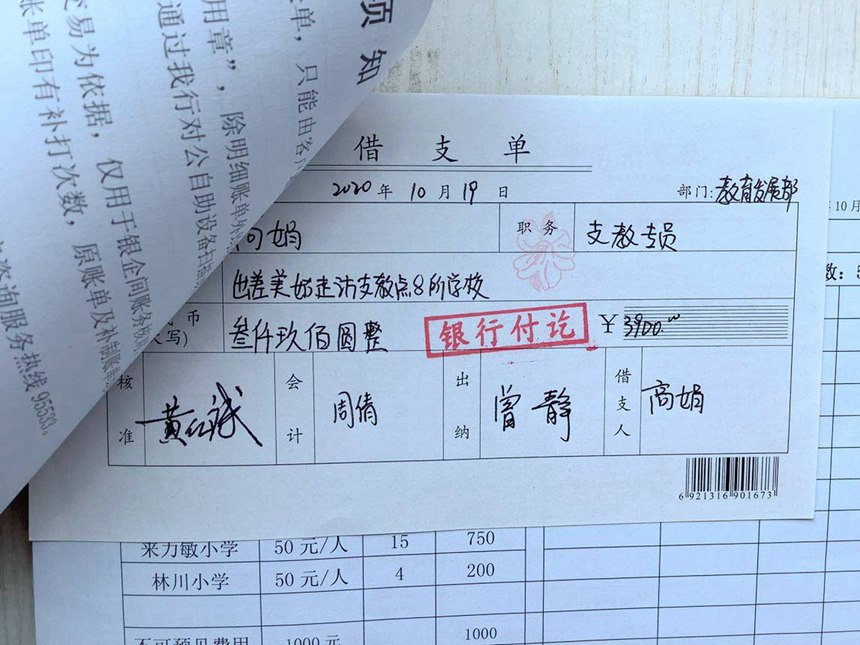 须知
账单，只能由客户
用章”，除明细账单外
通过我行对公自助设备扫描
交易为依据，仅用于银企间账务核
账单印有补打次数，原账单及补制账单
咨询服务热线95533。
借支单
2020年10月19日
部门：教育发展部
娟
职务
支教专员
出差美姑走访支教点8所学校
币
写)
叁仟玖佰圆整
银行付讫
¥3900.00
核准
会计
周倩
出纳
曾静
借支人
商娟
6 921316 901673
年10月
数：5
来力敏小学 50元/人 15 750
林川小学 50元/人 4 200
不可预见费用 1000元 1000